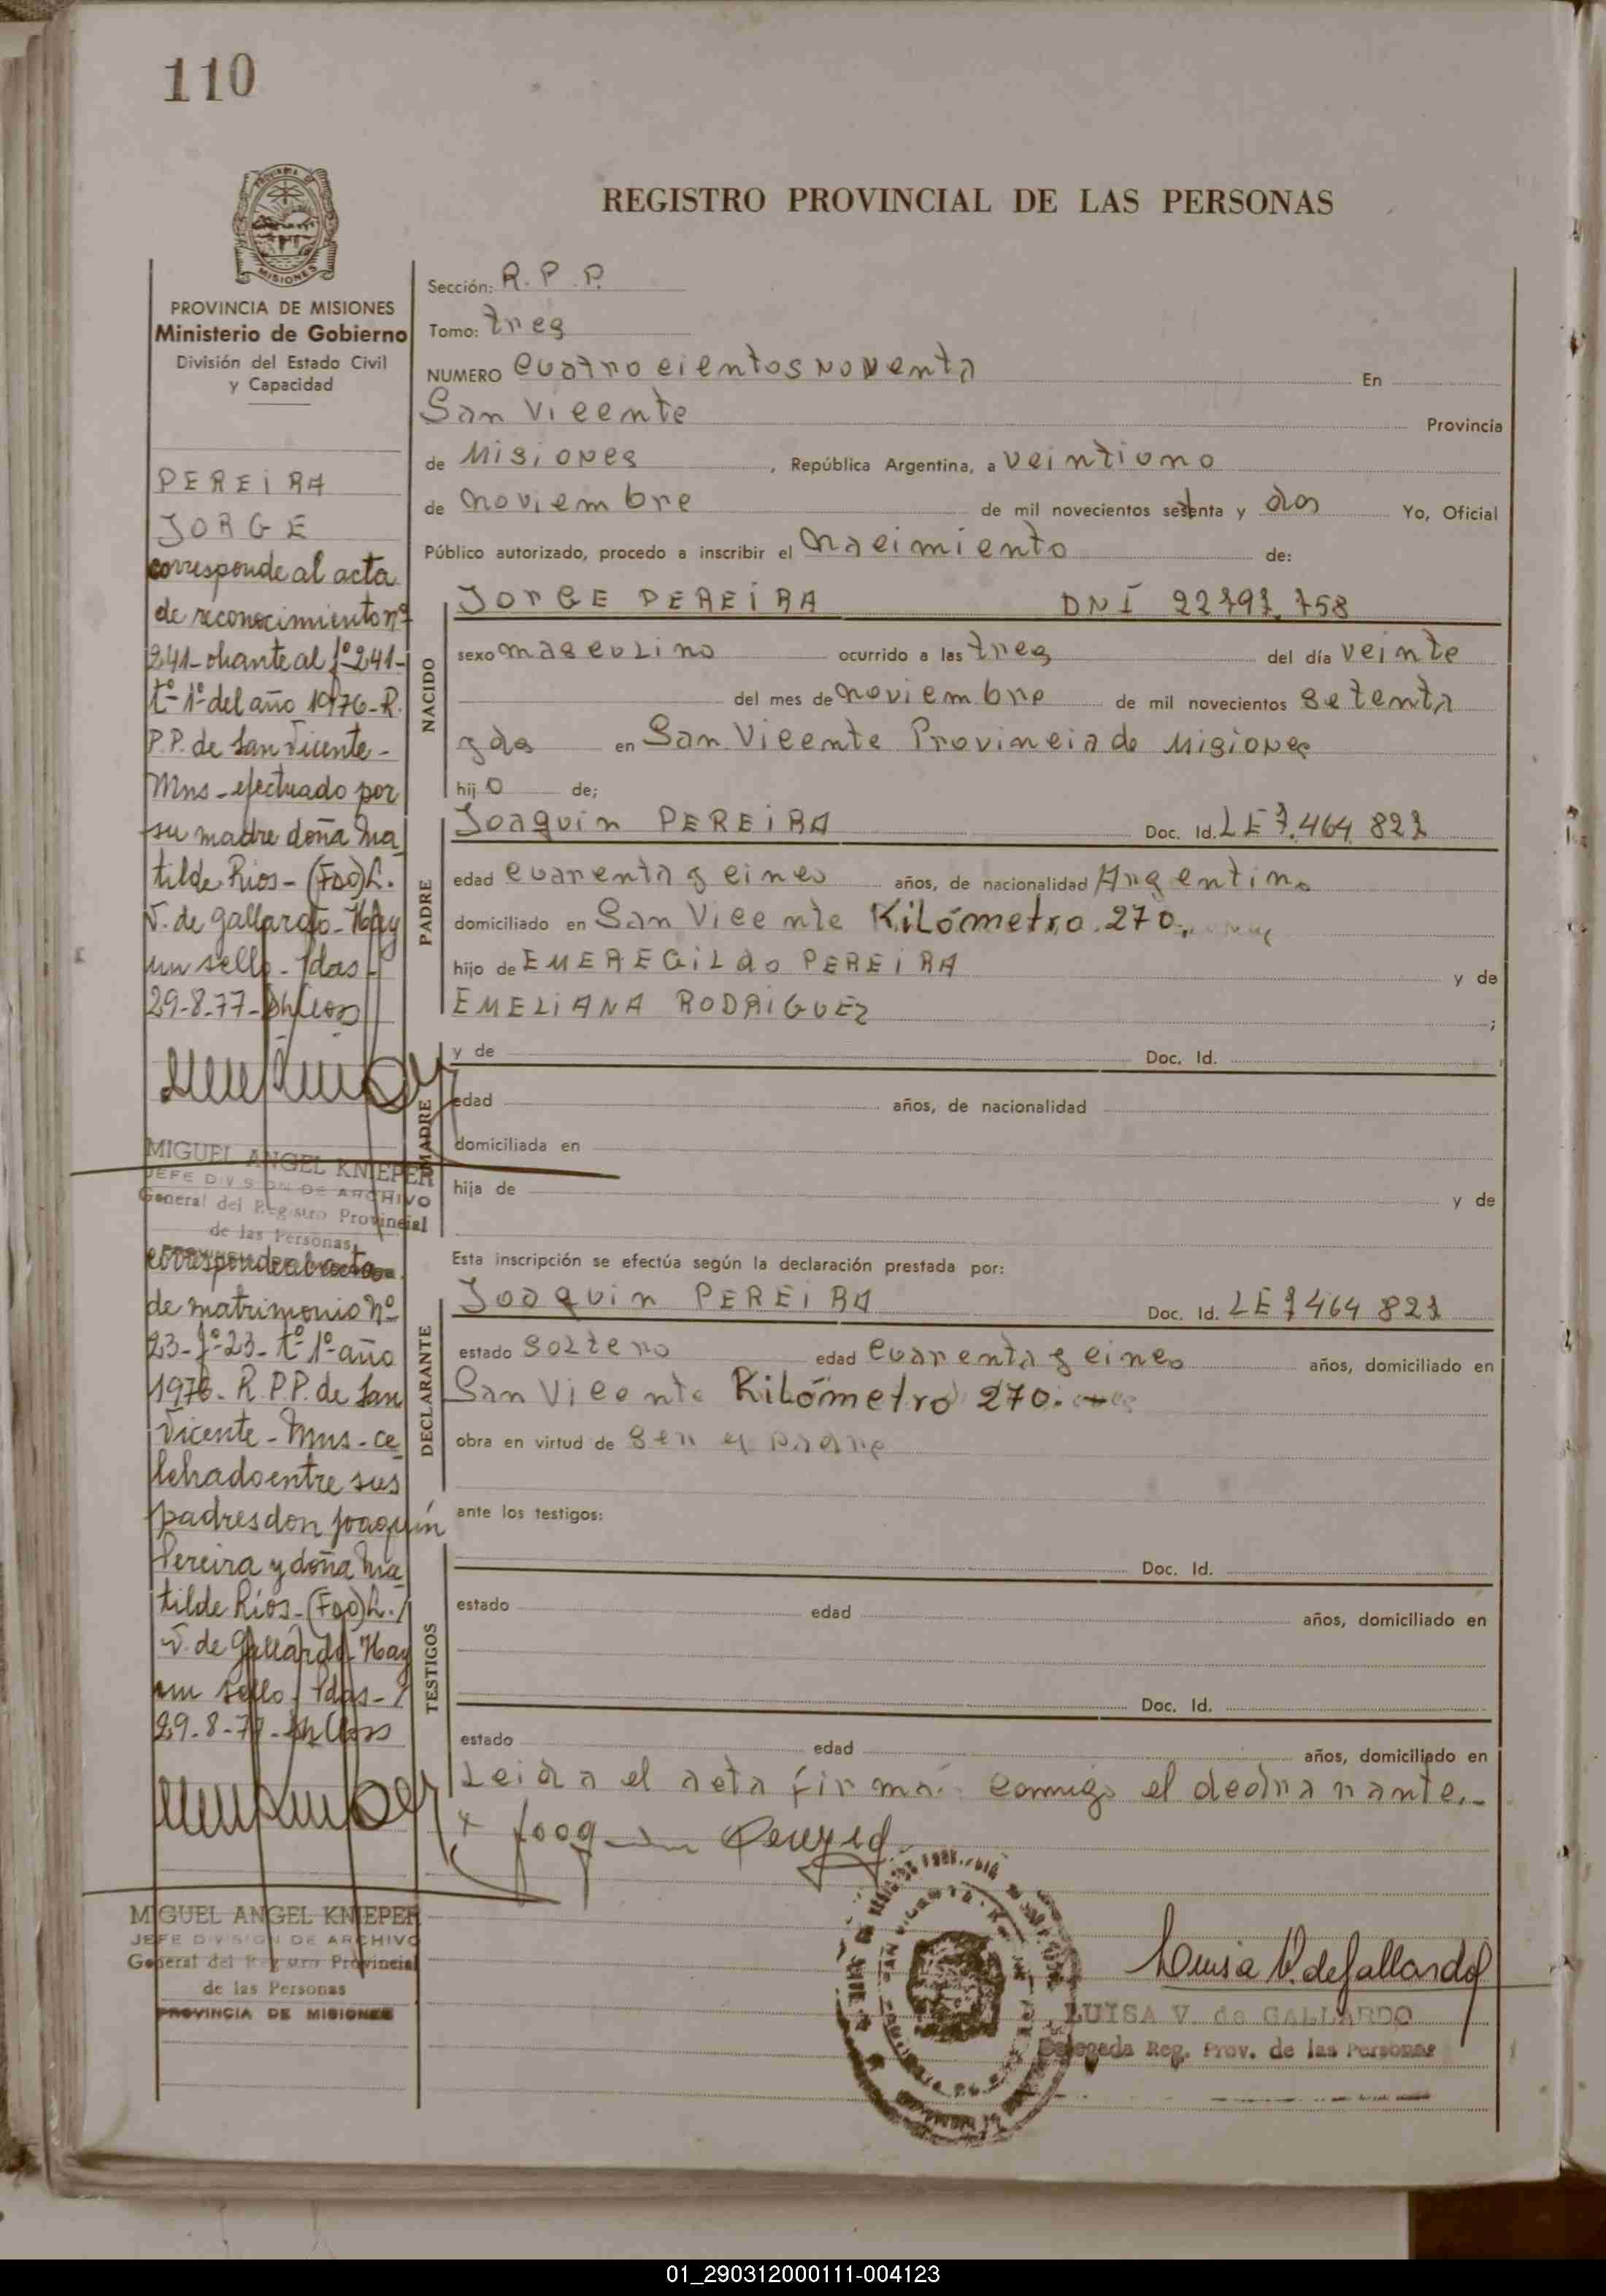 110
REGISTRO PROVINCIAL DE LAS PERSONAS
PROVINCIA DE MISIONES
Ministerio de Gobierno
División del Estado Civil
y Capacidad
PEREIRA
JORGE
corresponde al acta
de reconocimiento nº
241- obante al fº 241-
tº 1º del año 1976- R.
P.P. de San Vicente-
Mns- efectuado por
su madre doña Ma
tilde Rios- (Fdo) L.
V. de Gallardo- Hay
un sello- Pdas-
29-8-77-
MIGUEL ANGEL KNIEPER
JEFE DIVISION DE ARCHIVO
General del Registro Provincial
de las Personas
corresponde al acta
de matrimonio Nº
23- fº 23- tº 1º año
1976- R.P.P. de San
Vicente- Mns- ce
lebrado entre sus
padres don Joaquín
Pereira y doña Ma
tilde Ríos- (Fdo) L.
V. de Gallardo Hay
un sello- Pdas-
29-8-77-
MIGUEL ANGEL KNIEPER
JEFE DIVISION DE ARCHIVO
General del Registro Provincial
de las Personas
PROVINCIA DE MISIONES
Sección: R.P.P.
Tomo: tres
NUMERO cuatrocientos noventa En
San Vicente Provincia
de Misiones, República Argentina, a veintiuno
de noviembre de mil novecientos setenta y dos Yo, Oficial
Público autorizado, procedo a inscribir el nacimiento de:
NACIDO
JORGE PEREIRA DNI 22797.758
sexo masculino ocurrido a las tres del día veinte
del mes de noviembre de mil novecientos setenta
y dos en San Vicente Provincia de Misiones
hijo de;
PADRE
Joaquin PEREIRA Doc. Id. LE 7.464.827
edad cuarenta y cinco años, de nacionalidad Argentino
domiciliado en San Vicente Kilómetro 270.
hijo de EMEREGILDO PEREIRA y de
EMELIANA RODRIGUEZ ;
MADRE
y de Doc. Id.
edad años, de nacionalidad
domiciliada en
hija de y de
Esta inscripción se efectúa según la declaración prestada por:
DECLARANTE
Joaquin PEREIRA Doc. Id. LE 7464827
estado soltero edad cuarenta y cinco años, domiciliado en
San Vicente Kilómetro 270.
obra en virtud de ser el padre
ante los testigos:
TESTIGOS
Doc. Id.
estado edad años, domiciliado en
Doc. Id.
estado edad años, domiciliado en
Leida el acta firma conmigo el declarante.-
Luisa V. de Gallardo
LUISA V. de GALLARDO
Delegada Reg. Prov. de las Personas
01_290312000111-004123